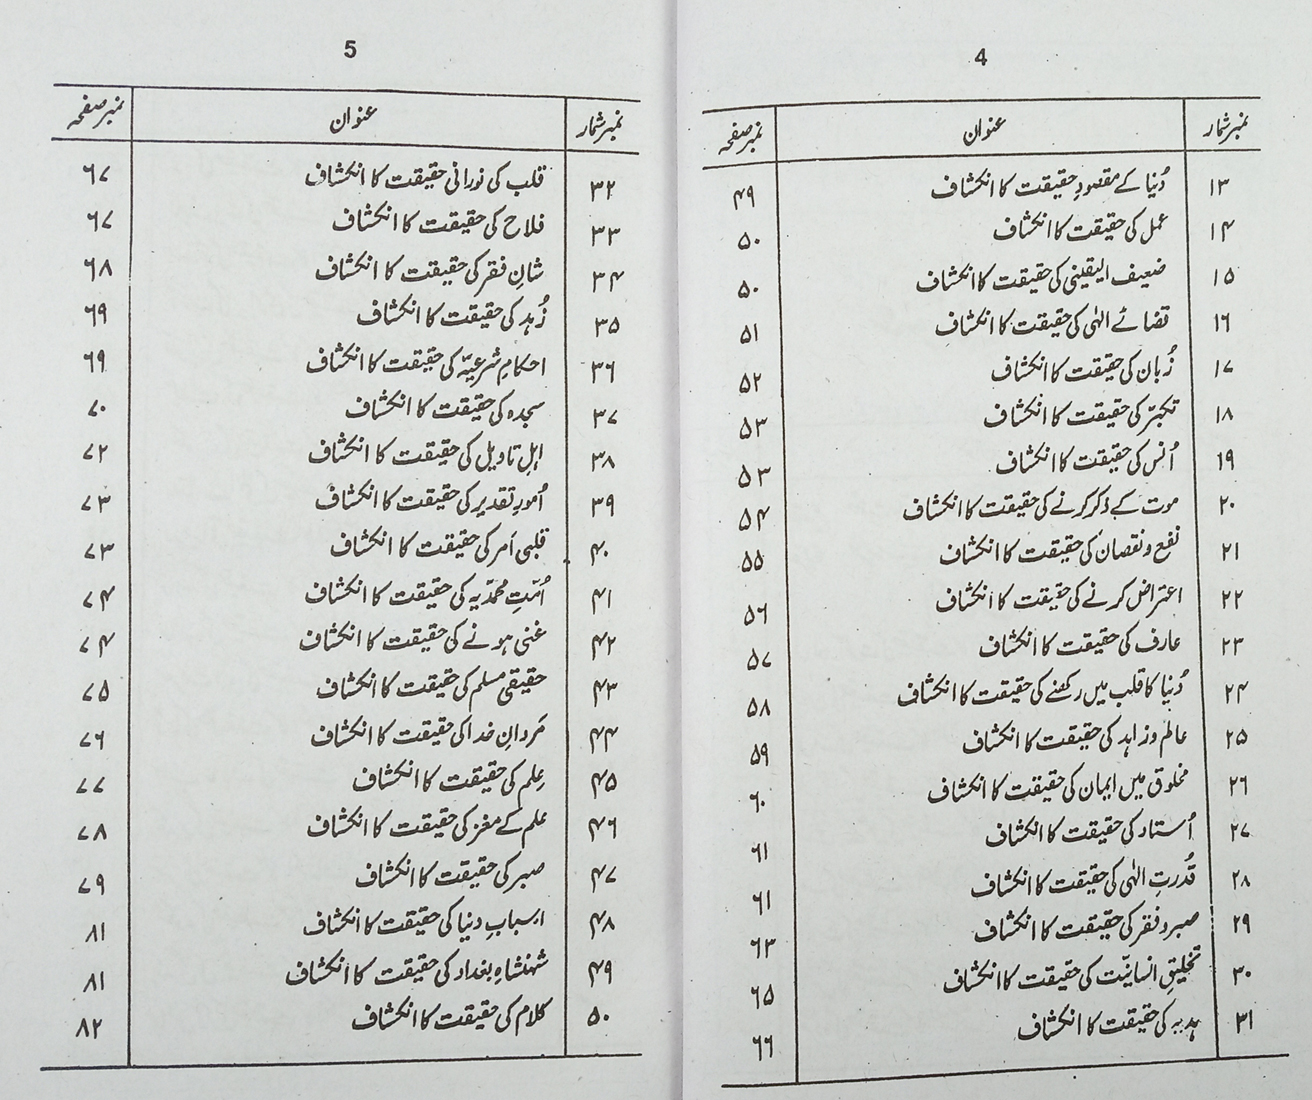 4
نمبر شمار عنوان نمبر صفحہ
۱۳ دُنیا کے مقصودِ حقیقت کا انکشاف ۴۹
۱۴ عمل کی حقیقت کا انکشاف ۵۰
۱۵ ضعیف الیقینی کی حقیقت کا انکشاف ۵۰
۱۶ قضائے الٰہی کی حقیقت کا انکشاف ۵۱
۱۷ زُبان کی حقیقت کا انکشاف ۵۲
۱۸ تکبّر کی حقیقت کا انکشاف ۵۳
۱۹ اُنس کی حقیقت کا انکشاف ۵۳
۲۰ موت کے ذکر کرنے کی حقیقت کا انکشاف ۵۴
۲۱ نفع و نقصان کی حقیقت کا انکشاف ۵۵
۲۲ اعتراض کرنے کی حقیقت کا انکشاف ۵۶
۲۳ عارف کی حقیقت کا انکشاف ۵۷
۲۴ دُنیا کا قلب میں رکھنے کی حقیقت کا انکشاف ۵۸
۲۵ عالم و زاہد کی حقیقت کا انکشاف ۵۹
۲۶ مخلوق میں ایمان کی حقیقت کا انکشاف ۶۰
۲۷ اُستاد کی حقیقت کا انکشاف ۶۱
۲۸ قُدرتِ الٰہی کی حقیقت کا انکشاف ۶۱
۲۹ صبر و فقر کی حقیقت کا انکشاف ۶۳
۳۰ تخلیقِ انسانیّت کی حقیقت کا انکشاف ۶۵
۳۱ ہدیہ کی حقیقت کا انکشاف ۶۶
5
نمبر شمار عنوان نمبر صفحہ
۳۲ قلب کی نورانی حقیقت کا انکشاف ۶۷
۳۳ فلاح کی حقیقت کا انکشاف ۶۷
۳۴ شانِ فقر کی حقیقت کا انکشاف ۶۸
۳۵ زُہد کی حقیقت کا انکشاف ۶۹
۳۶ احکامِ شرعیّہ کی حقیقت کا انکشاف ۶۹
۳۷ سجدہ کی حقیقت کا انکشاف ۷۰
۳۸ اہلِ تاویل کی حقیقت کا انکشاف ۷۲
۳۹ اُمورِ تقدیر کی حقیقت کا انکشاف ۷۳
۴۰ قلبی اَمر کی حقیقت کا انکشاف ۷۳
۴۱ اُمّتِ محمّدیہ کی حقیقت کا انکشاف ۷۴
۴۲ غنی ہونے کی حقیقت کا انکشاف ۷۴
۴۳ حقیقی مسلم کی حقیقت کا انکشاف ۷۵
۴۴ مَردانِ خدا کی حقیقت کا انکشاف ۷۶
۴۵ عِلم کی حقیقت کا انکشاف ۷۷
۴۶ علم کے مغز کی حقیقت کا انکشاف ۷۸
۴۷ صبر کی حقیقت کا انکشاف ۷۹
۴۸ اسبابِ دنیا کی حقیقت کا انکشاف ۸۱
۴۹ شہنشاہِ بغداد کی حقیقت کا انکشاف ۸۱
۵۰ کلام کی حقیقت کا انکشاف ۸۲